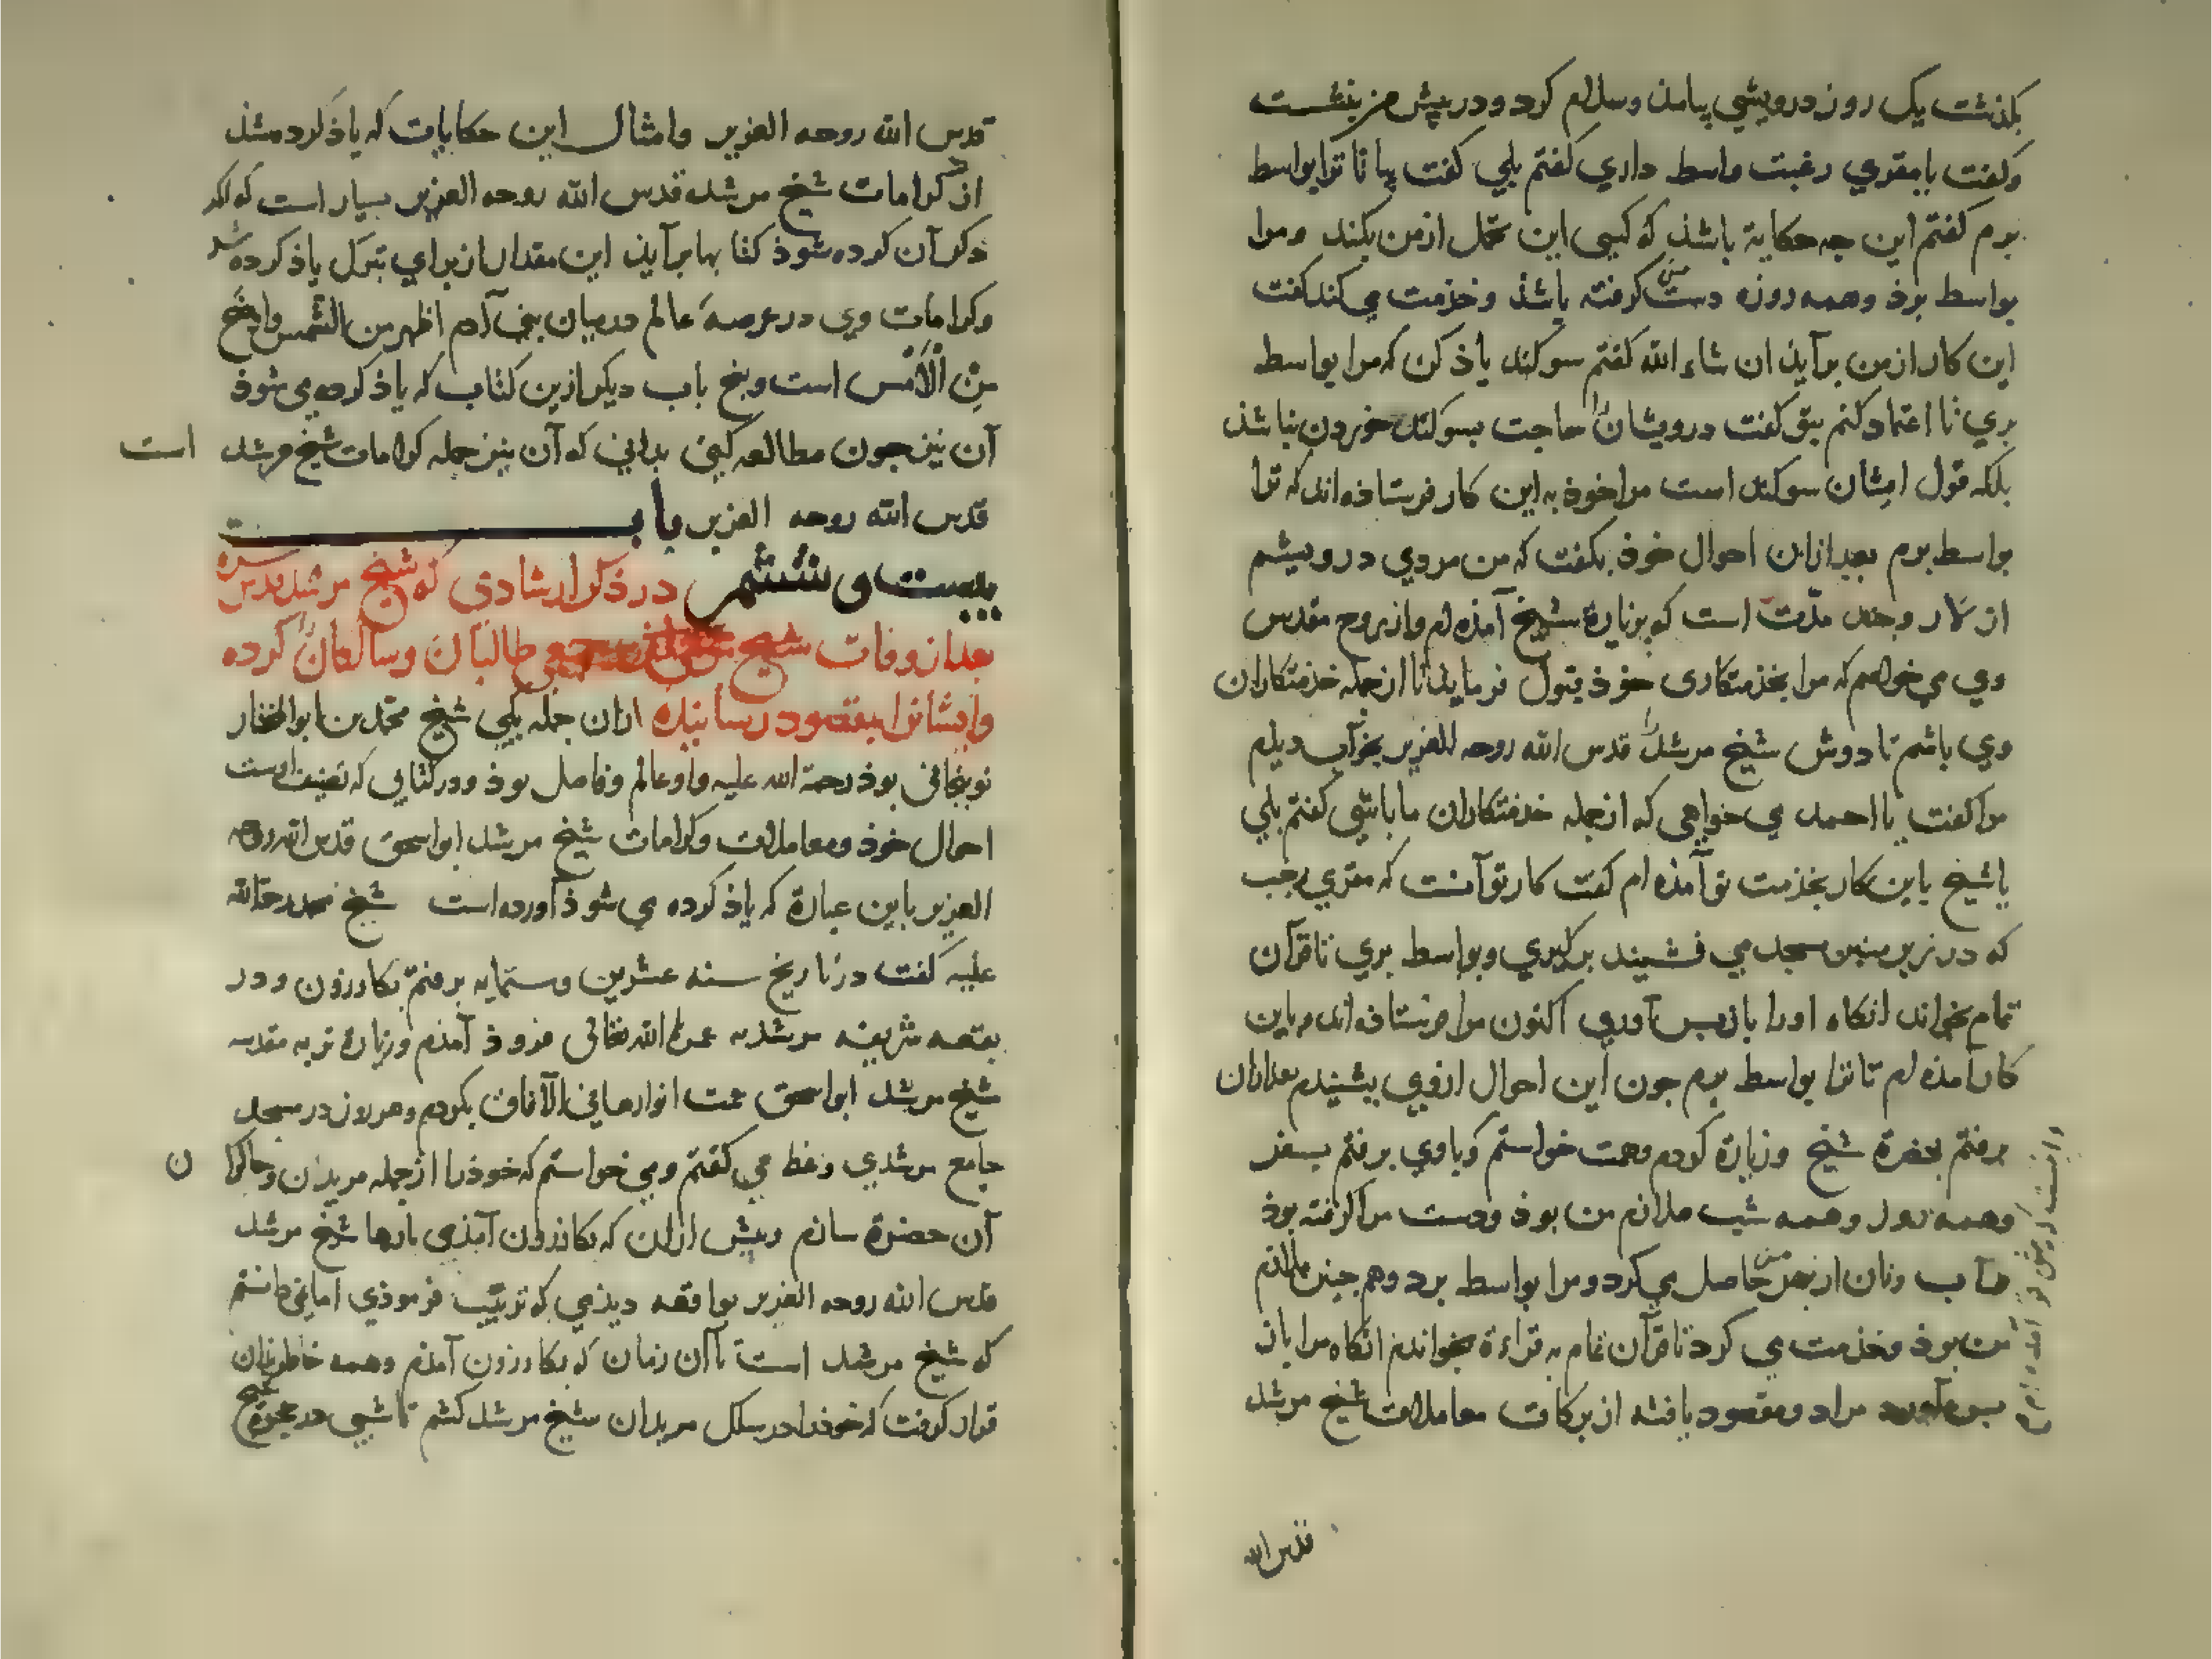 بكذشت يک روز درويشي بيامذ وسلام كرد و در پيش من بنشست
وكفت يا مقري رغبت واسط داري كفتم بلي كفت بيا تا ترا بواسط
برم كفتم اين چه حكاية باشذ كه كسي اين تحمل از من بكند و مرا
بواسط برذ وهمه روزه دست من كرفته باشذ وخذمت مي كند كفت
اين كار از من برآيذ ان شاء الله كفتم سوكند ياذ كن كه مرا بواسط
بري تا اعتماد كنم بتو كفت درويشانرا حاجت بسوكند خوردن نباشذ
بلكه قول ايشان سوكند است مرا خوذ به اين كار فرستاذه اند كه ترا
بواسط برم بعد ازان احوال خوذ بكفت كه من مردي درويشم
از لار و چند مدّت است كه بزيارة شيخ آمذه ام و از روح مقدس
وي مي خواهم كه مرا بخذمتكاري خوذ قبول فرمايد تا از جمله خذمتكاران
وي باشم تا دوش شيخ مرشد را قدس الله روحه العزيز بخواب ديذم
مرا كفت يا احمد مي خواهي كه از جمله خذمتكاران ما باشي كفتم بلي
يا شيخ باين كار بخذمت تو آمذه ام كفت كار تو آنست كه مقري رجب
كه در زير منبر مسجد مي نشيند بركيري وبواسط بري تا قرآن
تمام بخواند انكاه اورا باز پس آوري اكنون مرا فرستاذه اند و باين
كار آمذه ام تا ترا بواسط برم جون اين احوال ازوي بشنيذم بعد ازان
برفتم بحضرة شيخ وزيارة كردم وهمت خواستم و باوي برفتم بسفر
وهمه روز وهمه شب ملازم من بوذ ودست مرا كرفته بوذ
و آب ونان از بهر من حاصل مي كرد و مرا بواسط برد وهم جنين ملازم
من بوذ وخذمت مي كرد تا قرآن تمام به قراءة بخواندم انكاه مرا باز
پس آورد مراد ومقصود يافته از بركات معاملات شيخ مرشد
قدس الله
قدس الله روحه العزيز وامثال اين حكايات كه ياذ كرده شذ
از كرامات شيخ مرشد قدس الله روحه العزيز بسيار است كه اكر
ذكر آن كرده شوذ كتابها برآيذ اين مقدار از براي تبرك ياذ كرده شد
وكرامات وي در عرصهٔ عالم در ميان بني آدم اظهر من الشمس واوضح
مِنْ الْأَمْس است وپنج باب ديكر ازين كتاب كه ياذ كرده مي شوذ
آن نيز جون مطالعه كني بداني كه آن نيز جمله كرامات شيخ مرشد است
قدس الله روحه العزيز باب
بيست و ششم در ذكر ارشادي كه شيخ مرشد قدس سره
بعد از وفات شيخ جمعي طالبان وسالكانرا كرده
وايشانرا بمقصود رسانيده ازان جمله يكي شيخ محمد بن ابو المختار
نوبنجاني بوذ رحمة الله عليه واو عالم وفاضل بوذ و در كتابي كه تصنيف اوست
احوال خوذ ومعاملات وكرامات شيخ مرشد ابو اسحق قدس الله روحه
العزيز باين عبارة كه ياذ كرده مي شوذ آورده است شيخ محمد رحمة الله
عليه كفت در تاريخ سنه عشرين وستمايه برفتم بكازرون و در
بقعه شريفه مرشديه عمرها الله تعالى فروذ آمذم وزيارة تربه مقدسه
شيخ مرشد ابو اسحق عمت انوارها في الآفاق بكردم وهر روز در مسجد
جامع مرشدي وعظ مي كفتم ومي خواستم كه خوذ را از جمله مريدان وچاكران
آن حضرة سازم وپيش ازان كه بكازرون آمذمي بارها شيخ مرشد
قدس الله روحه العزيز بواقعه ديذمي كه تربيت فرموذي اما نمي دانستم
كه شيخ مرشد است تا آن زمان كه بكازرون آمذم وهمه خاطرم بران
قرار كرفت كه خوذ را در سلك مريدان شيخ مرشد كشم تا شبي در حجرة شيخ